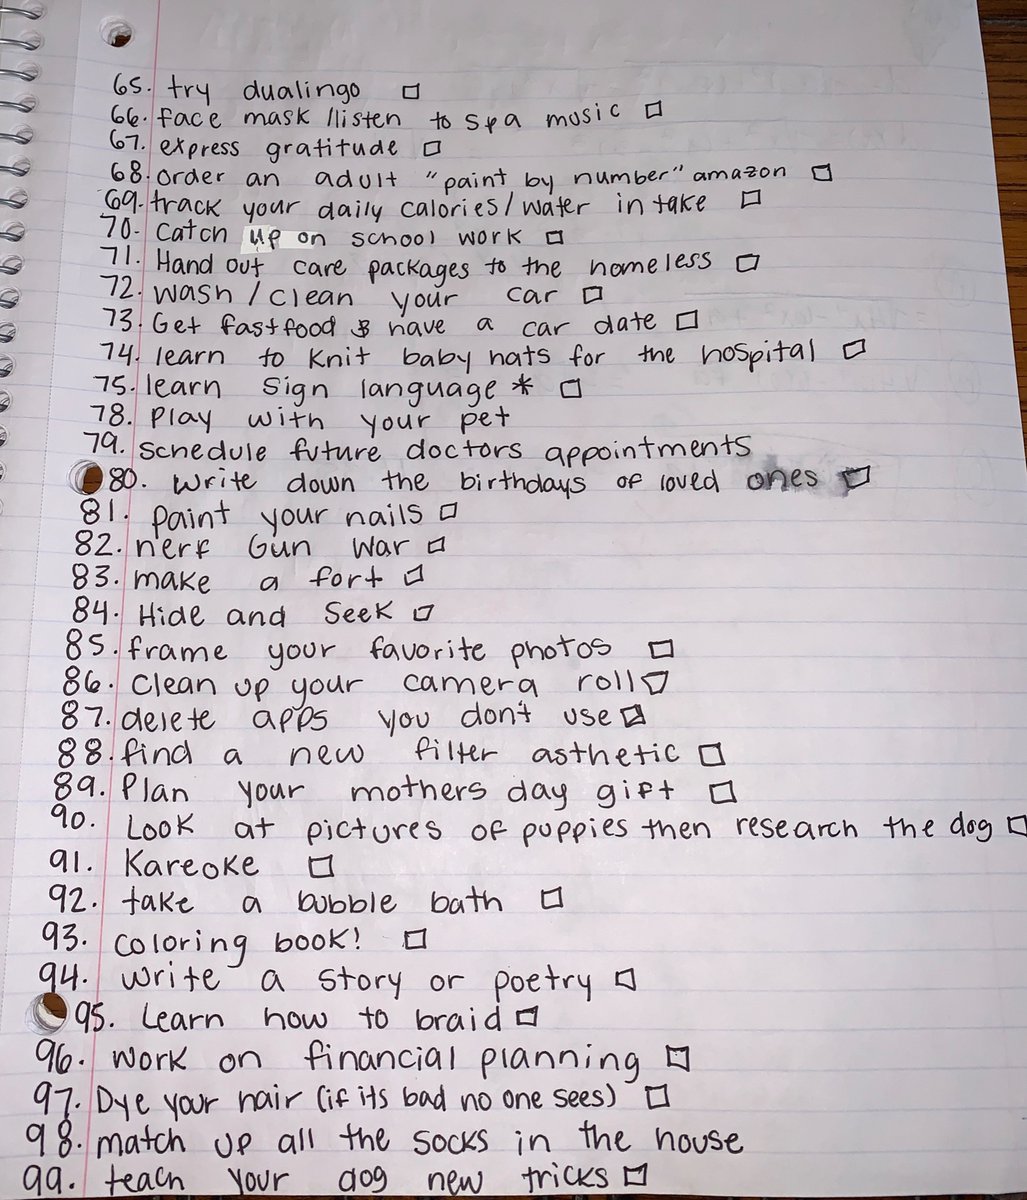 65. try dualingo
66. face mask /listen to spa music
67. express gratitude
68. order an adult "paint by number" amazon
69. track your daily calories/water in take
70. catch up on school work
71. Hand out care packages to the homeless
72. wash/clean your car
73. Get fastfood & have a car date
74. learn to knit baby hats for the hospital
75. learn sign language *
78. Play with your pet
79. schedule future doctors appointments
80. write down the birthdays of loved ones
81. paint your nails
82. nerf Gun War
83. make a fort
84. Hide and Seek
85. frame your favorite photos
86. clean up your camera roll
87. delete apps you don't use
88. find a new filter asthetic
89. Plan your mothers day gift
90. Look at pictures of puppies then research the dog
91. Kareoke
92. take a bubble bath
93. coloring book!
94. write a story or poetry
95. Learn how to braid
96. work on financial planning
97. Dye your hair (if its bad no one sees)
98. match up all the socks in the house
99. teach your dog new tricks